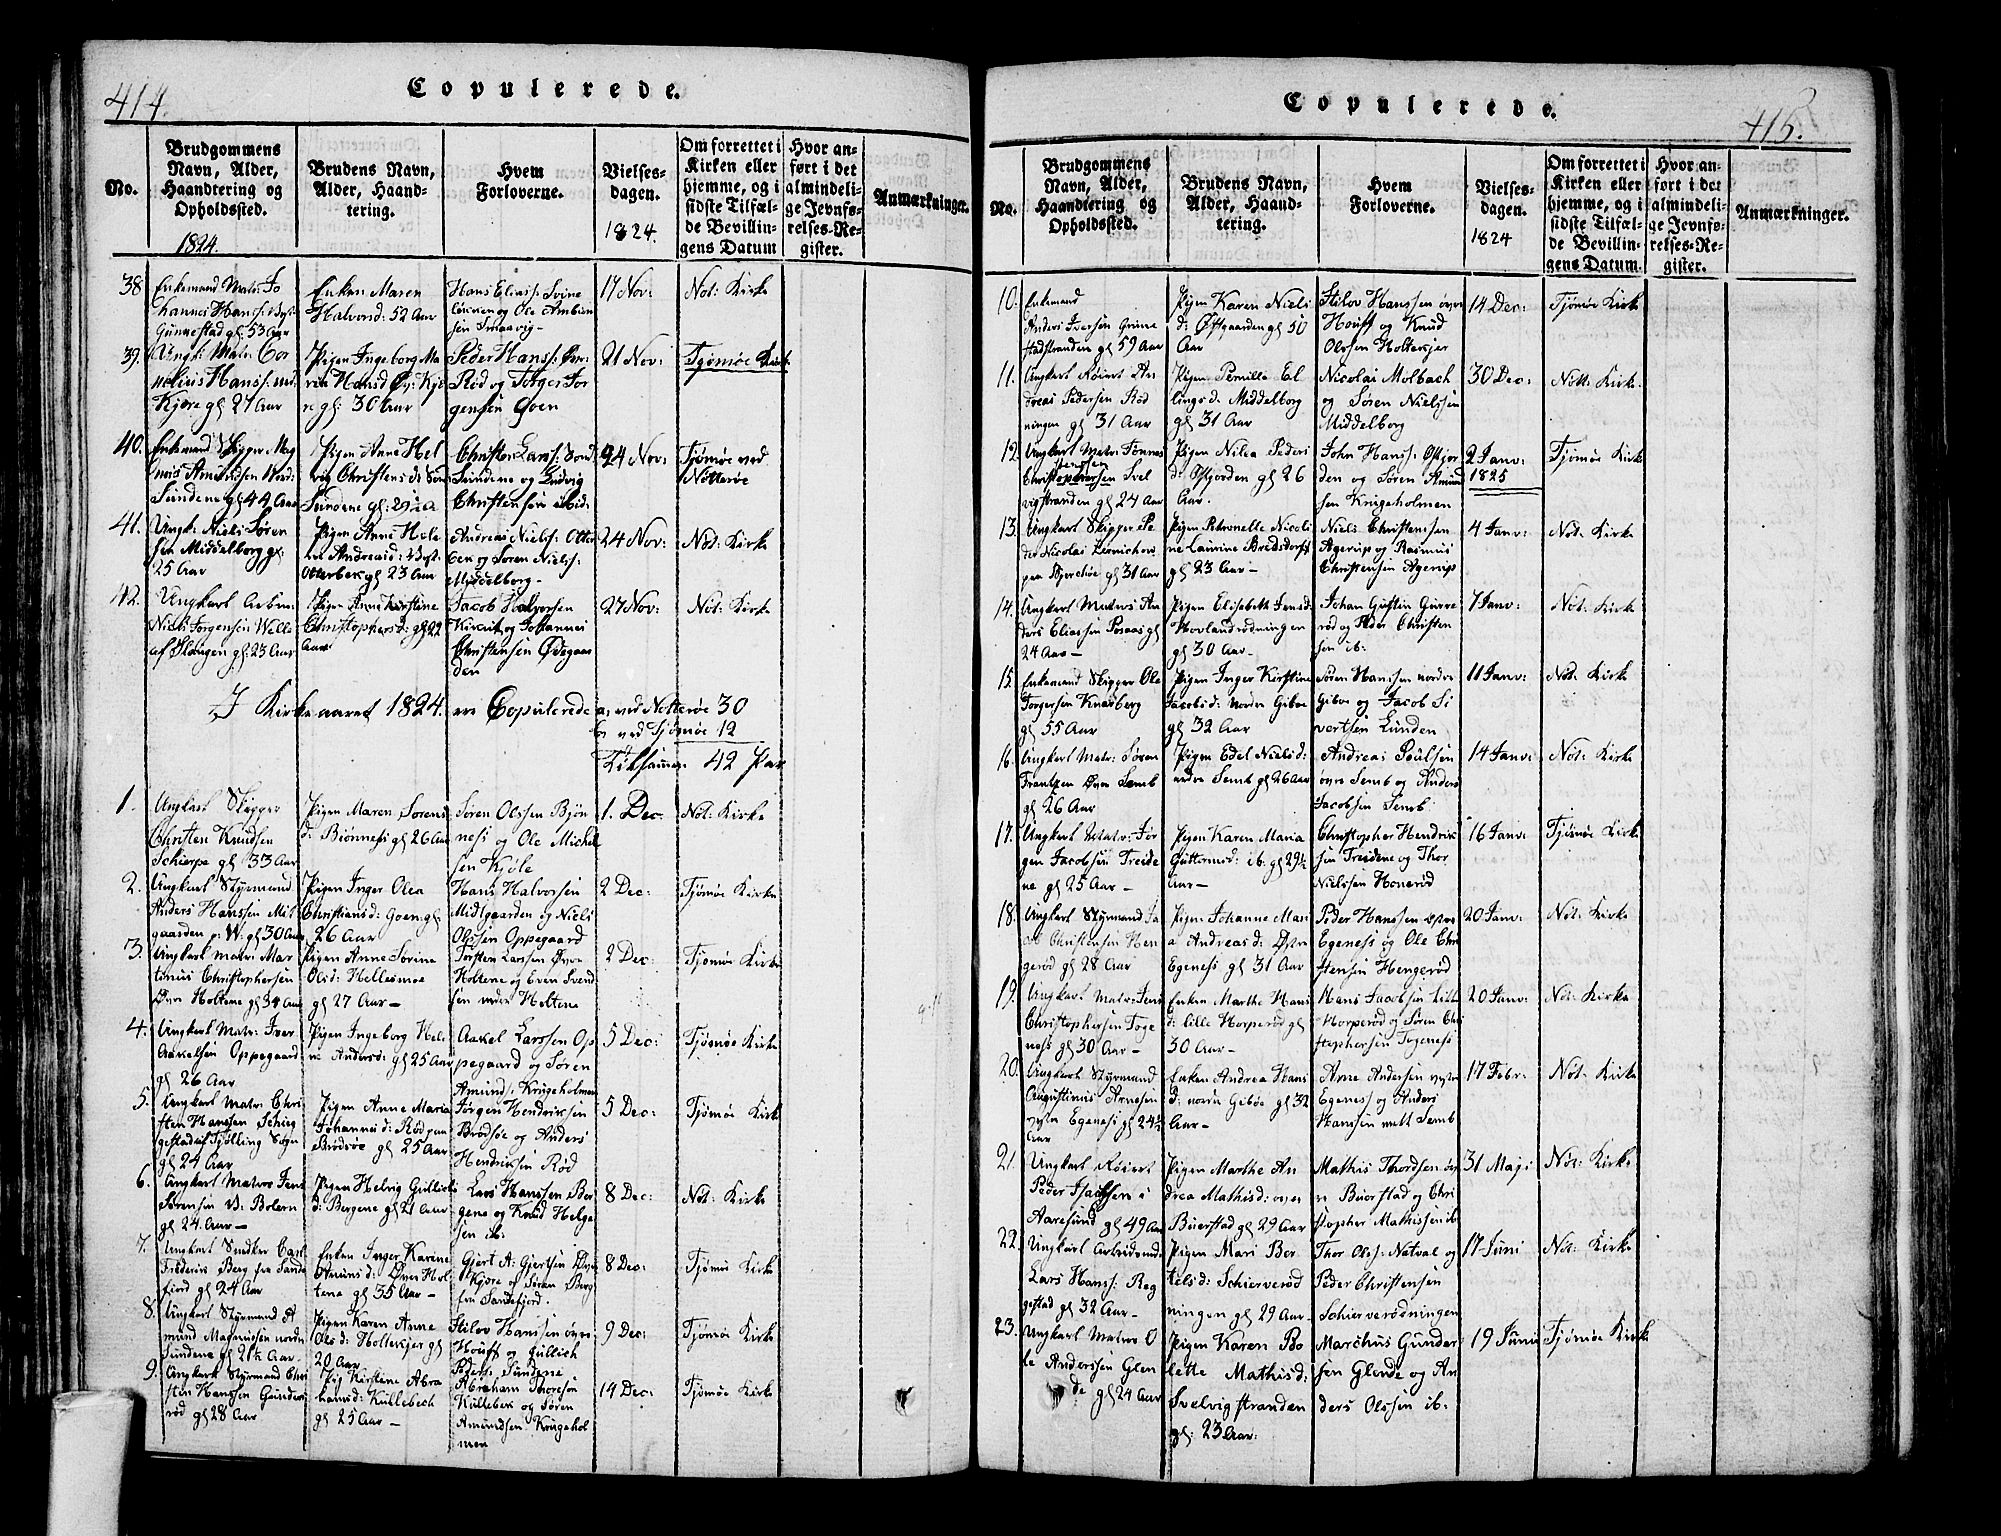 414.
Copulerede.
No.
Brudgommens Navn, Alder, Haandtering og Opholdssted.
1824.
Brudens Navn, Alder, Haandtering.
Hvem Forloverne.
Vielsesdagen.
1824.
Om forrettet i Kirken eller hjemme, og i sidste Tilfælde Bevillingens Datum
Hvor anført i det almindelige Jevnførelses-Register.
Anmærkninger.
38 Enkemand Matr: Johannes Hans: Gunnestad gl: 53 Aar
Enken Maren Halvorsd: 52 Aar
Hans Elias: og Ole
17 Nov:
Not: Kirke
39. Ungk: Matr: Cornelius Hans: Kjøre gl 27 Aar
Pigen Ingeborg Maria Hansd Øv: Kjøre gl: 30 Aar
Peder Hans: Rød og Torger Jorgensen Goen
21 Nov:
Tjømøe Kirk
40. Enkemand Skipper Magnus Amundsen Nord: Sundene gl 44 Aar
Pigen Anne Helvig Christensd Sundene gl:
Christen Lars: Sundene og Ludvig Christensen ibid:
24 Nov:
Tjømøe ved Nøtterøe
41. Ungk: Niels Sørensen Middelborg gl: 25 Aar
Pigen Anne Helene Andreasd: Otterbek gl 23 Aar
Andreas Niels: Otterbek og Søren Niels: Middelborg
24 Nov:
Not: Kirke
42. Ungkarl Niels Jorgensen af Slangen gl: 23 Aar
Pigen Anne Kirstine Christophersd: gl 22 Aar
Jacob Halvorsen og Johannes Christensen Ødegaarden
27 Nov:
Not: Kirke
I Kirkeaaret 1824. ere Copulerede a, ved Nøtterøe 30
b, ved Tjømøe 12
Tilsammen 42 Par
1. Ungkarl Skipper Christen Knudsen Schierpe gl 33 Aar
Pigen Maren Sørensd: Biønness gl 26 Aar
Søren Olssen Bjønness og Ole Michelsen Kjøle
1. Dec:
Not: Kirke
2. Ungkarl Styrmand Anders Hanssen Mitgaarden p: W: gl 30 Aar
Pigen Inger Olea Christiansd: Goen gl: 26 Aar
Hans Halvorsen Midtgaarden og Niels Olssen Oppegaard
2 Dec:
Tjømøe Kirke
3. Ungkarl Matr: Martinus Christophersen Øvre Holtene gl 34 Aar
Pigen Anne Sørine Olsd: Hellesmoe gl 27 Aar
Torsten Larssen Øvre Holtene og Even Svendsen nedre Holtene
2 Dec:
Tjømøe Kirke
4. Ungkarl Matr: Iver Axelsen Oppegaard gl 26 Aar
Pigen Ingeborg Helene Andersd: gl 25 Aar
Axel Larssen Oppegaard og Søren Amund: Krugeholmen
5 Dec:
Tjømøe Kirke
5. Ungkarl Matr: Christen Hanssen af Tjølling Sogn gl 24 Aar
Pigen Anne Maria Johannesd: Rød paa Brødsøe gl 25 Aar
Jørgen Hendriksen Brødsøe og Anders Hendriksen Rød
5 Dec:
Tjømøe Kirke
6. Ungkarl Matros Jens Sørensen V: Bolærn gl 24 Aar
Pigen Helvig Gullichsd: Bergene gl 21 Aar
Lars Hanssen Bergene og Knud Helgesen ib:
8 Dec:
Not: Kirke
7. Ungkarl Carl Frederik Berg fra Sandefiord gl 24 Aar
Enken Inger Karine d: Øvre Holtene gl 35 Aar
Gjert A: Gjertsen Øvre Kjøre og Søren Berg fra Sandefjord.
8 Dec:
Tjømøe Kirke
8. Ungkarl Styrmand Amund Magnussen nordre Sundene gl 21½ Aar
Pigen Karen Anne Olsd: Holtekjer gl 20 Aar
Stilov Hanssen øvre Houff og Gullich Peders: Sundene
9 Dec:
Tjømøe Kirke
9. Ungkarl Styrmand Christen Hanssen Gunderirød gl 28 Aar
Pig Kirstene Abrahamsd: Kullebech gl 25 Aar
Abraham Thoresøn Kullebek og Søren Amundsen Krugeholmen
14 Dec:
Tjømøe Kirk
415.
Copulerede.
No.
Brudgommens Navn, Alder, Haandtering og Opholdssted.
Brudens Navn, Alder, Haandtering.
Hvem Forloverne.
Vielsesdagen.
1824
Om forrettet i Kirken eller hjemme, og i sidste Tilfælde Bevillingens Datum.
Hvor anført i det almindelige Jevnførelses-Register.
Anmærkninger.
10. Enkemand Anders Iversen Grimestadstranden gl 59 Aar
Pigen Karen Nielsd: Østgaarden gl 50 Aar
Stilov Hanssen øvre Houff og Knud Olssen Holtekjer
14 Dec:
Tjømøe Kirk
11. Ungkarl Røiert Andreas Pedersen Rødningen gl 31 Aar
Pigen Pernille Ellingsd: Middelborg gl 31 Aar
Nicolai Molbach og Søren Nielssen Middelborg
30 Dec:
Nøtt: Kirke
12. Ungkarl Matr: Tønnes Christophersen Svelvigstranden gl 24 Aar
Pigen Nilea Pedersd: Østjorden gl 26 Aar.
John Hans: Østjorden og Søren Amundsen Krugeholmen
2 Janv: 1825
Tjømøe Kirk
13. Ungkarl Skipper Peder Nicolai paa Bjerchøe gl 31 Aar
Pigen Petronelle Nicoline Laurine Bredsdorff gl 23 Aar
Niels Christensen Agerup og Rasmus Christensen Agerup
4 Janv:
Nøt: Kirke
14. Ungkarl Matros Anders Eliassen gl 24 Aar
Pigen Elisabeth Jensd: Hovlandrødningen gl 30 Aar
Johan Gustin og Peder Christensen ib:
7 Janv:
Nøt: Kirke
15. Enkemand Skipper Ole Torgersen Knarberg gl 55 Aar
Pigen Inger Kirstine Jacobsd: Nordre Giboe gl 32 Aar
Søren Hanssen nordre Giboe og Jacob Sivertsen Lunden
11 Janv:
Nøt: Kirke
16. Ungkarl Matr: Søren Frantzen Øvre Semb gl 26 Aar
Pigen Edel Nielsd: nedre Semb gl 26 Aar
Andreas Poulsen øvre Semb og Anders Jacobsen Semb
14 Janv:
Nøt: Kirke
17. Ungkarl Matr: Jørgen Jacobsen Treidene gl 25 Aar
Pigen Karen Maria Guttormsd: ib: gl 29½ Aar
Christopher Hendriksen Treidene og Thor Nielssen Honerød
16 Janv:
Tjømøe Kirke
18. Ungkarl Styrmand Jacob Christensen Hengerød gl 28 Aar
Pigen Johanne Maria Andreasd: Østre Egeness gl 31 Aar
Peder Hanssen østre Egeness og Ole Christensen Hengerød
20 Janv:
Nøt: Kirke
19. Ungkarl Matr: Jens Christophersen Togeness gl 30 Aar
Enken Marthe Hansd: lille Horperød gl 30 Aar
Hans Jacobsen Lille Horperød og Søren Christophersen Togeness
20 Janv:
Nøt: Kirke
20. Ungkarl Styrmand Augustinus Arnesen Egeness gl 24½ Aar
Enken Andrea Hansd: nordre Giboe gl 32 Aar
Arne Andersen Egeness og Anders Hanssen mell Semb
17 Febr:
Nøt: Kirke
21. Ungkarl Røiert Peder Isachsen i Aarøsund gl 49 Aar
Pigen Marthe Andrea Mathisd: øvre Buerstad gl 29 Aar
Mathis Thordsen øvre Buerstad og Christopher Mathissen ib
31 Maji
Nøt: Kirke
22. Ungkarl Arbeidsmd: Lars Hans: Reggestad gl 32 Aar
Pigen Mari Bertelsd: Schierverødningen gl 29 Aar
Thor Ols: Natval og Peder Christensen Schierverødningen
17 Juni
Nøt: Kirke
23. Ungkarl Matros Ole Anderssen Glende gl 24 Aar
Pigen Karen Bolette Mathisd: Svelvigstranden gl: 23 Aar:
Marchus Gundersen Glende og Anders Olssen ib:
19 Juni
Tjømøe Kirke